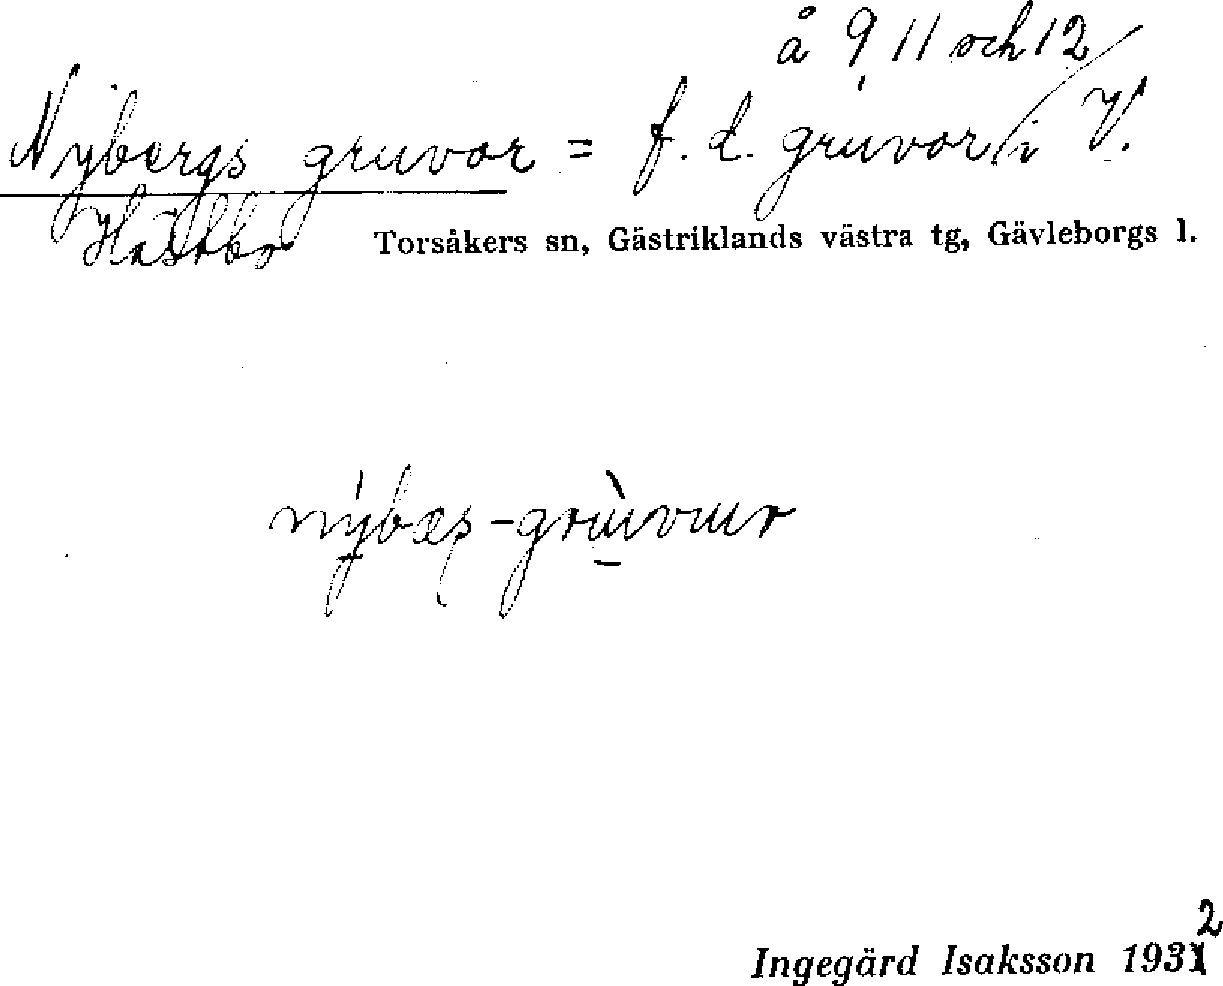 å 9, 11 och 12
Nybergs gruvor = f. d. gruvor / i V.
Hästbo Torsåkers sn, Gästriklands västra tg, Gävleborgs l.
nýbæș-grùvωr
Ingegärd Isaksson 1932